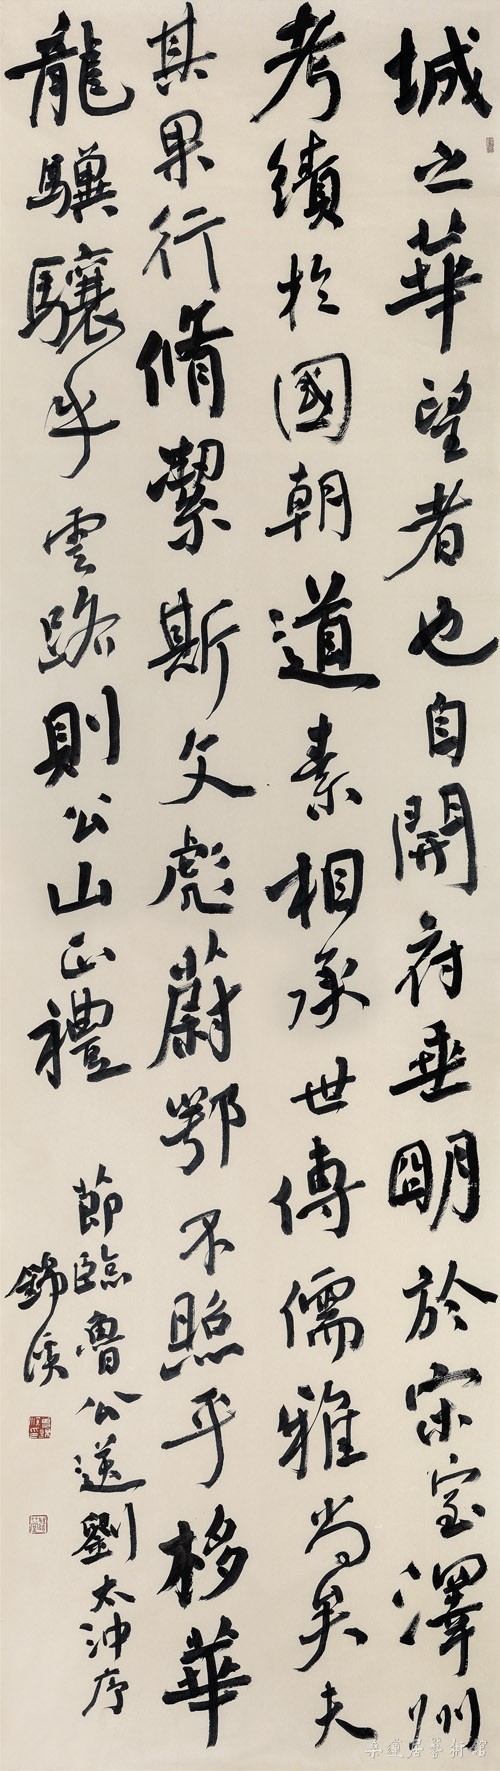 城之華望者也自開府垂明於宋室澤州
考績於國朝道素相承世傳儒雅尚矣夫
其果行脩絜斯文彪蔚鄂不照乎栘華
龍驥驤乎雲路則公山正禮
節臨魯公送劉太沖序
錦溪
居藝術館